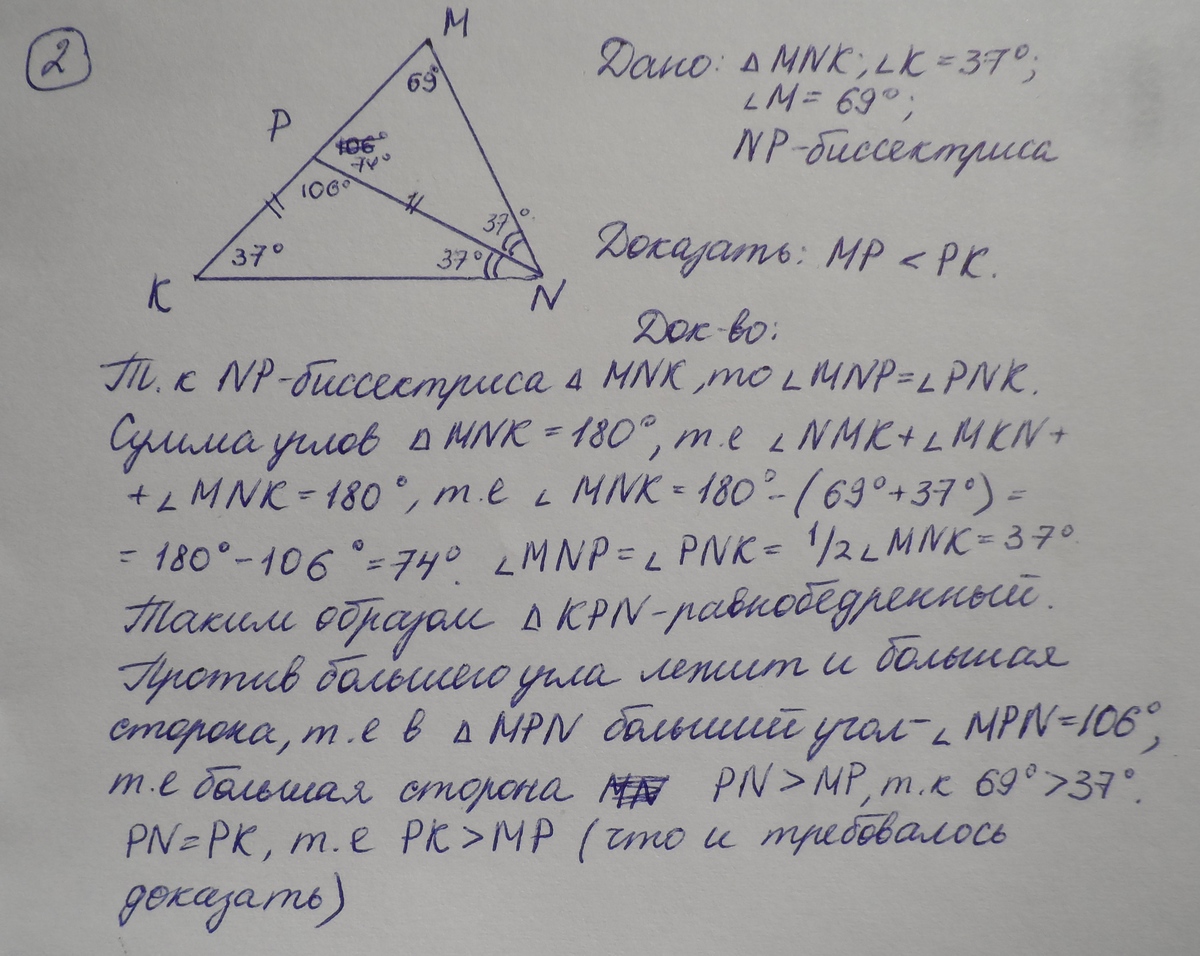 2
M
69°
P
106°
74°
106°
37°
37°
37°
K
N
Дано: Δ MNK; ∠K = 37°;
∠M = 69°;
NP-биссектриса
Доказать: MP < PK.
Док-во:
Т. к NP-биссектриса Δ MNK, то ∠MNP=∠PNK.
Сумма углов Δ MNK = 180°, т.е ∠NMK+∠MKN+
+∠MNK = 180°, т.е ∠ MNK = 180°-(69°+37°) =
= 180°-106° = 74°. ∠MNP = ∠ PNK = 1/2∠MNK = 37°.
Таким образом Δ KPN-равнобедренный.
Против большего угла лежит и большая
сторона, т.е в Δ MPN больший угол-∠ MPN=106°,
т.е большая сторона PN > MP, т.к 69°>37°.
PN=PK, т.е PK > MP (что и требовалось
доказать)